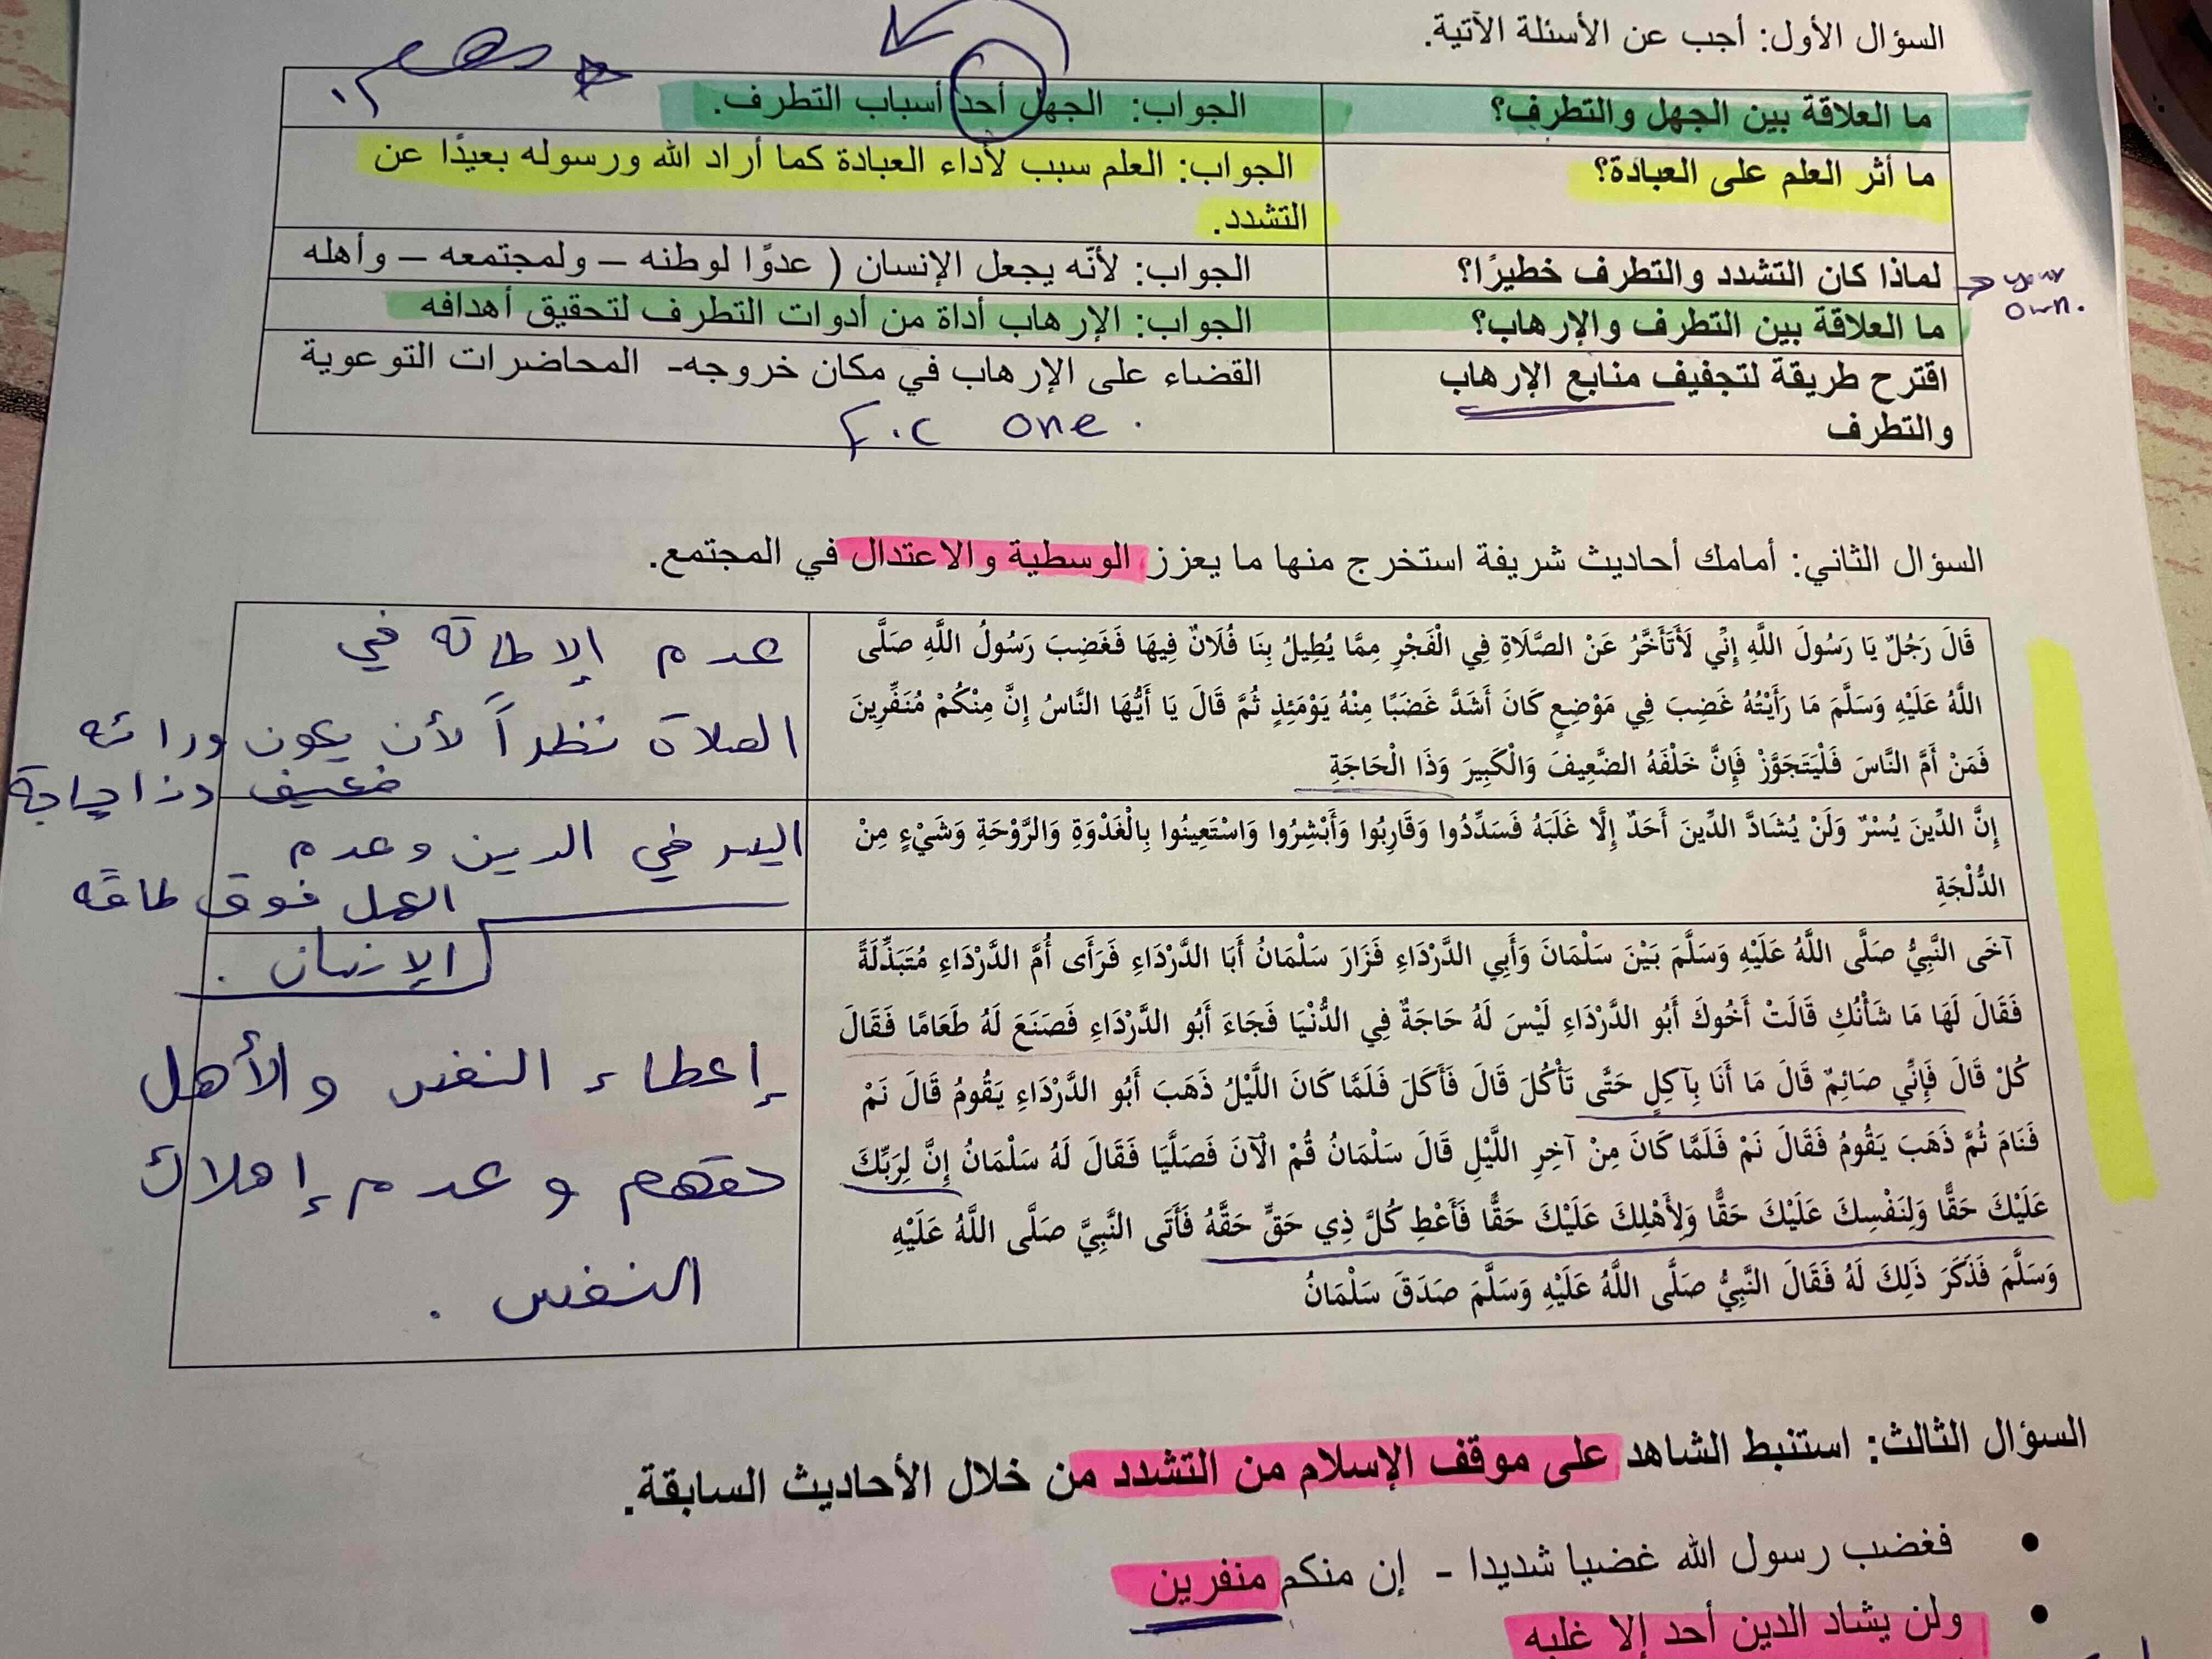 السؤال الأول: أجب عن الأسئلة الآتية.
مهم.
ما العلاقة بين الجهل والتطرف؟ الجواب: الجهل أحد أسباب التطرف.
ما أثر العلم على العبادة؟ الجواب: العلم سبب لأداء العبادة كما أراد الله ورسوله بعيدًا عن
التشدد.
لماذا كان التشدد والتطرف خطيرًا؟ الجواب: لأنّه يجعل الإنسان ( عدوًا لوطنه – ولمجتمعه – وأهله
your
own.
ما العلاقة بين التطرف والإرهاب؟ الجواب: الإرهاب أداة من أدوات التطرف لتحقيق أهدافه
اقترح طريقة لتجفيف منابع الإرهاب
والتطرف
القضاء على الإرهاب في مكان خروجه- المحاضرات التوعوية
one.
السؤال الثاني: أمامك أحاديث شريفة استخرج منها ما يعزز الوسطية والاعتدال في المجتمع.
قَالَ رَجُلٌ يَا رَسُولَ اللَّهِ إِنِّي لَأَتَأَخَّرُ عَنْ الصَّلَاةِ فِي الْفَجْرِ مِمَّا يُطِيلُ بِنَا فُلَانٌ فِيهَا فَغَضِبَ رَسُولُ اللَّهِ صَلَّى
اللَّهُ عَلَيْهِ وَسَلَّمَ مَا رَأَيْتُهُ غَضِبَ فِي مَوْضِعٍ كَانَ أَشَدَّ غَضَبًا مِنْهُ يَوْمَئِذٍ ثُمَّ قَالَ يَا أَيُّهَا النَّاسُ إِنَّ مِنْكُمْ مُنَفِّرِينَ
فَمَنْ أَمَّ النَّاسَ فَلْيَتَجَوَّزْ فَإِنَّ خَلْفَهُ الضَّعِيفَ وَالْكَبِيرَ وَذَا الْحَاجَةِ
عدم الإطالة في
الصلاة نظراً لأن يكون ورائه
ضعيف وذا حاجة
إِنَّ الدِّينَ يُسْرٌ وَلَنْ يُشَادَّ الدِّينَ أَحَدٌ إِلَّا غَلَبَهُ فَسَدِّدُوا وَقَارِبُوا وَأَبْشِرُوا وَاسْتَعِينُوا بِالْغَدْوَةِ وَالرَّوْحَةِ وَشَيْءٍ مِنْ
الدُّلْجَةِ
اليسر في الدين وعدم
العمل فوق طاقه
الإنسان.
آخَى النَّبِيُّ صَلَّى اللَّهُ عَلَيْهِ وَسَلَّمَ بَيْنَ سَلْمَانَ وَأَبِي الدَّرْدَاءِ فَزَارَ سَلْمَانُ أَبَا الدَّرْدَاءِ فَرَأَى أُمَّ الدَّرْدَاءِ مُتَبَذِّلَةً
فَقَالَ لَهَا مَا شَأْنُكِ قَالَتْ أَخُوكَ أَبُو الدَّرْدَاءِ لَيْسَ لَهُ حَاجَةٌ فِي الدُّنْيَا فَجَاءَ أَبُو الدَّرْدَاءِ فَصَنَعَ لَهُ طَعَامًا فَقَالَ
كُلْ قَالَ فَإِنِّي صَائِمٌ قَالَ مَا أَنَا بِآكِلٍ حَتَّى تَأْكُلَ قَالَ فَأَكَلَ فَلَمَّا كَانَ اللَّيْلُ ذَهَبَ أَبُو الدَّرْدَاءِ يَقُومُ قَالَ نَمْ
فَنَامَ ثُمَّ ذَهَبَ يَقُومُ فَقَالَ نَمْ فَلَمَّا كَانَ مِنْ آخِرِ اللَّيْلِ قَالَ سَلْمَانُ قُمْ الْآنَ فَصَلَّيَا فَقَالَ لَهُ سَلْمَانُ إِنَّ لِرَبِّكَ
عَلَيْكَ حَقًّا وَلِنَفْسِكَ عَلَيْكَ حَقًّا وَلِأَهْلِكَ عَلَيْكَ حَقًّا فَأَعْطِ كُلَّ ذِي حَقٍّ حَقَّهُ فَأَتَى النَّبِيَّ صَلَّى اللَّهُ عَلَيْهِ
وَسَلَّمَ فَذَكَرَ ذَلِكَ لَهُ فَقَالَ النَّبِيُّ صَلَّى اللَّهُ عَلَيْهِ وَسَلَّمَ صَدَقَ سَلْمَانُ
إعطاء النفس والأهل
حقهم وعدم إهلاك
النفس.
السؤال الثالث: استنبط الشاهد على موقف الإسلام من التشدد من خلال الأحاديث السابقة.
• فغضب رسول الله غضبا شديدا - إن منكم منفرين
• ولن يشاد الدين أحد إلا غلبه